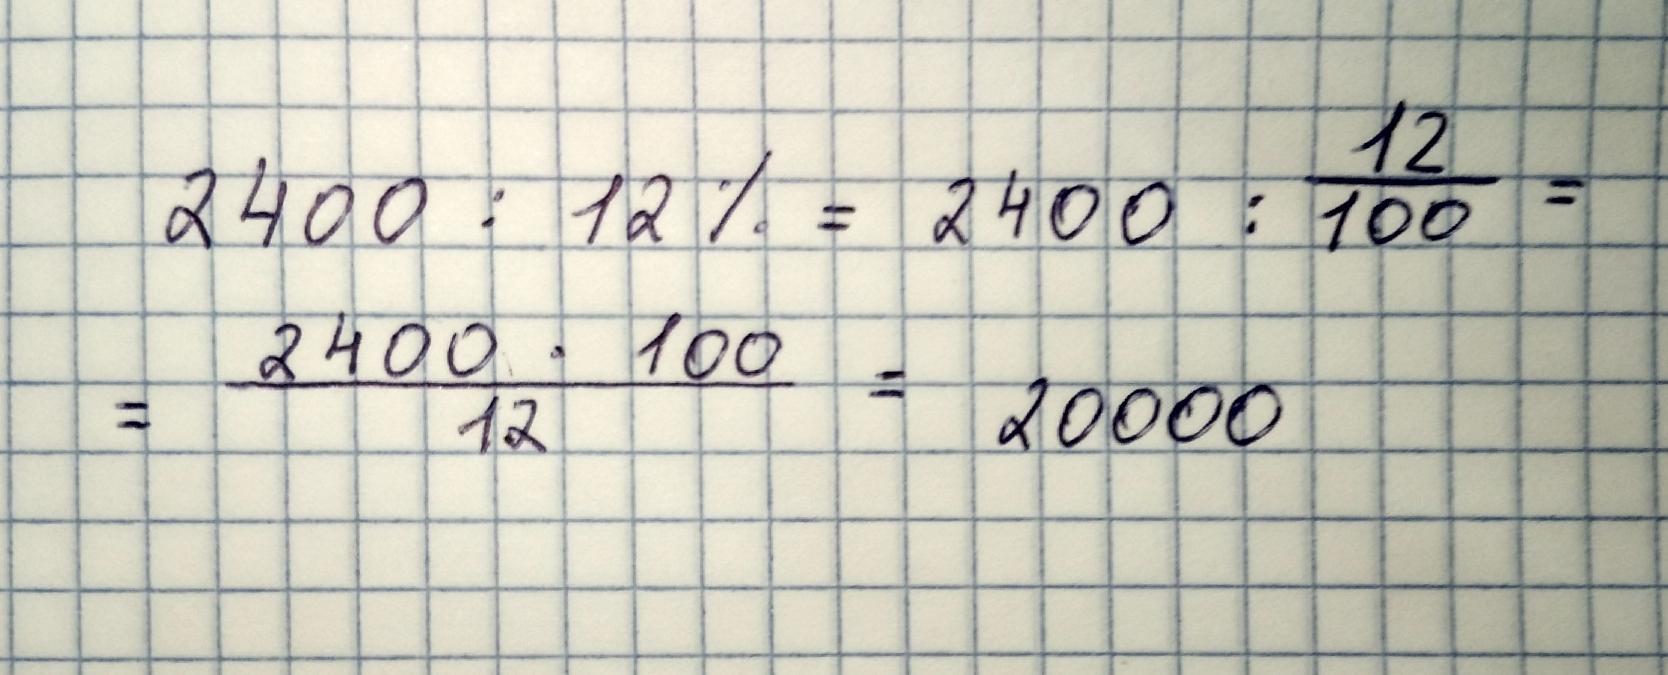 2400 : 12% = 2400 : 12/100 =
= 2400 · 100/12 = 20000